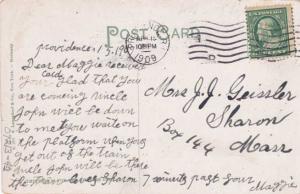 POST CARD
10 PM
1909
Providence
Dear Maggie received
your Card Glad that you
are coming Uncle
John will be down
to meet you wait on
the platform when you
get out of the train
Uncle John will be there
the train leaves Sharon 7 minits past four
Maggie
Mrs J. J. Geissler
Sharon
Box 144
Mass